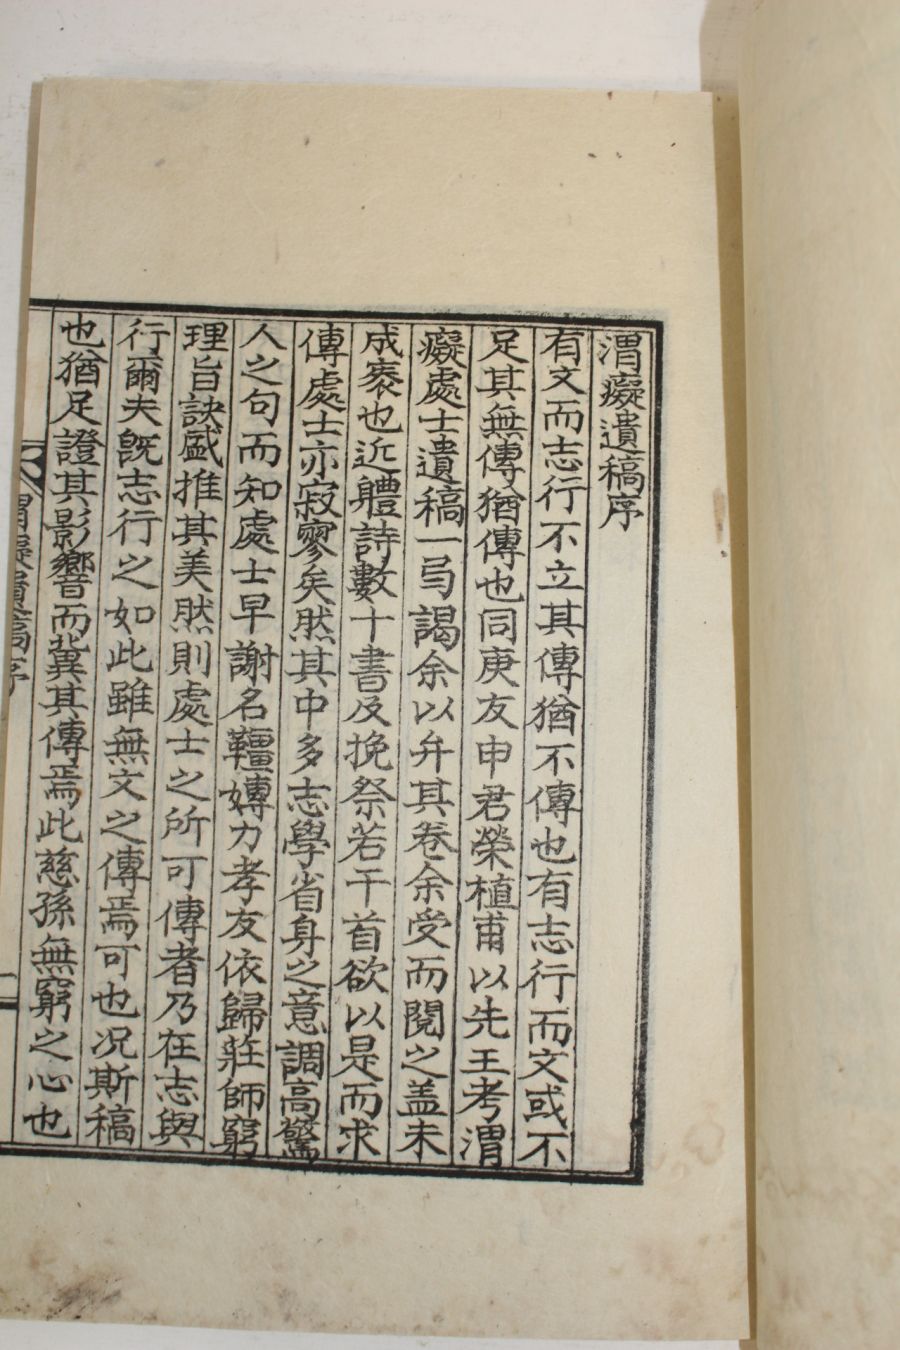 渭癡遺稿序
有文而志行不立其傳猶不傳也有志行而文或不
足其無傳猶傳也同庚友申君榮植甫以先王考渭
癡處士遺稿一弓謁余以弁其卷余受而閱之盖未
成袠也近體詩數十書及挽祭若干首欲以是而求
傳處士亦寂寥矣然其中多志學省身之意調高驚
人之句而知處士早謝名韁嫥力孝友依歸莊師窮
理旨訣盛推其美然則處士之所可傳者乃在志與
行爾夫旣志行之如此雖無文之傳焉可也况斯稿
也猶足證其影響而冀其傳焉此慈孫無窮之心也
渭癡遺稿序